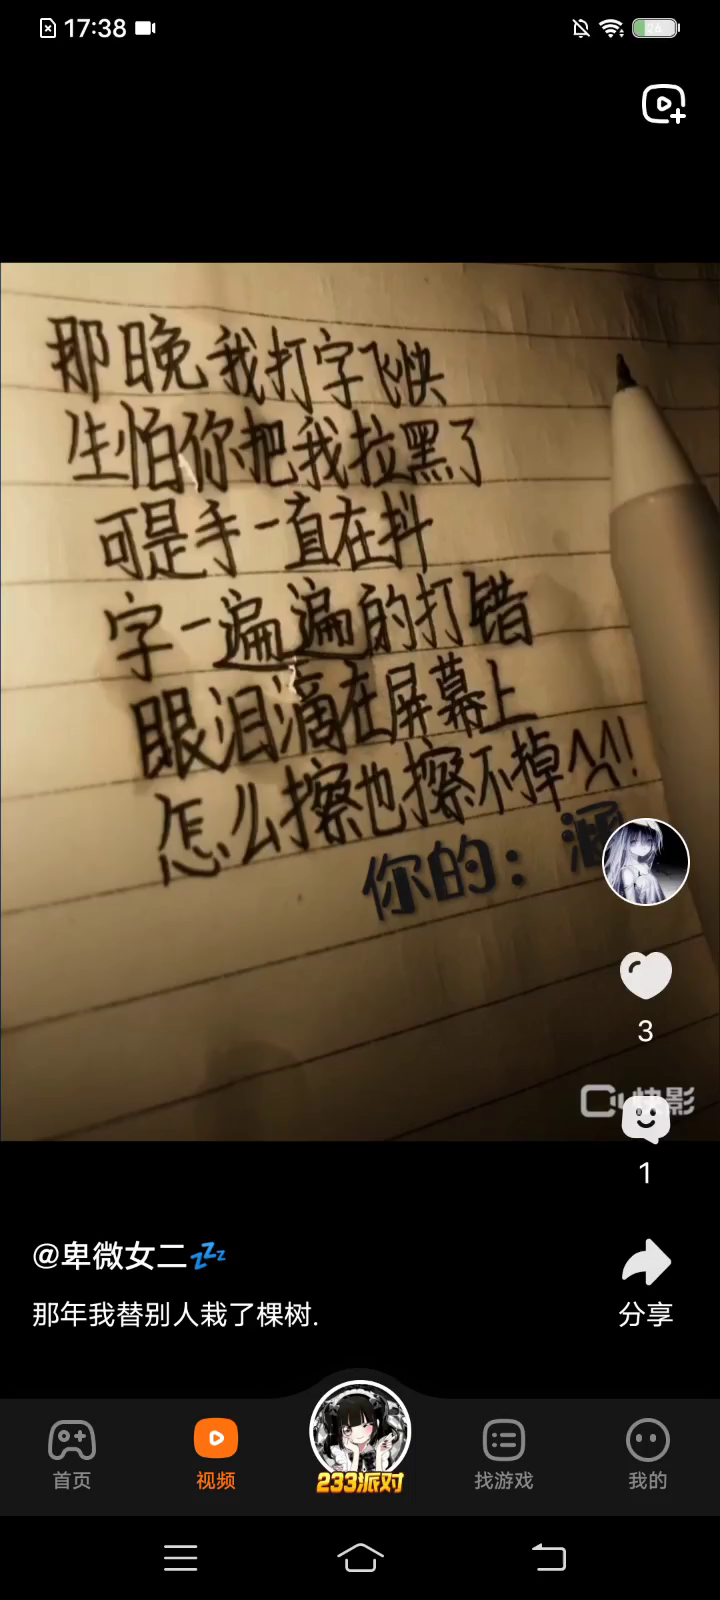 17:38
26
那晚我打字飞快
生怕你把我拉黑了
可是手一直在抖
字一遍遍的打错
眼泪滴在屏幕上
怎么擦也擦不掉^^!
你的：涵
3
快影
1
@卑微女二💤
那年我替别人栽了棵树.
分享
233派对
首页
视频
找游戏
我的